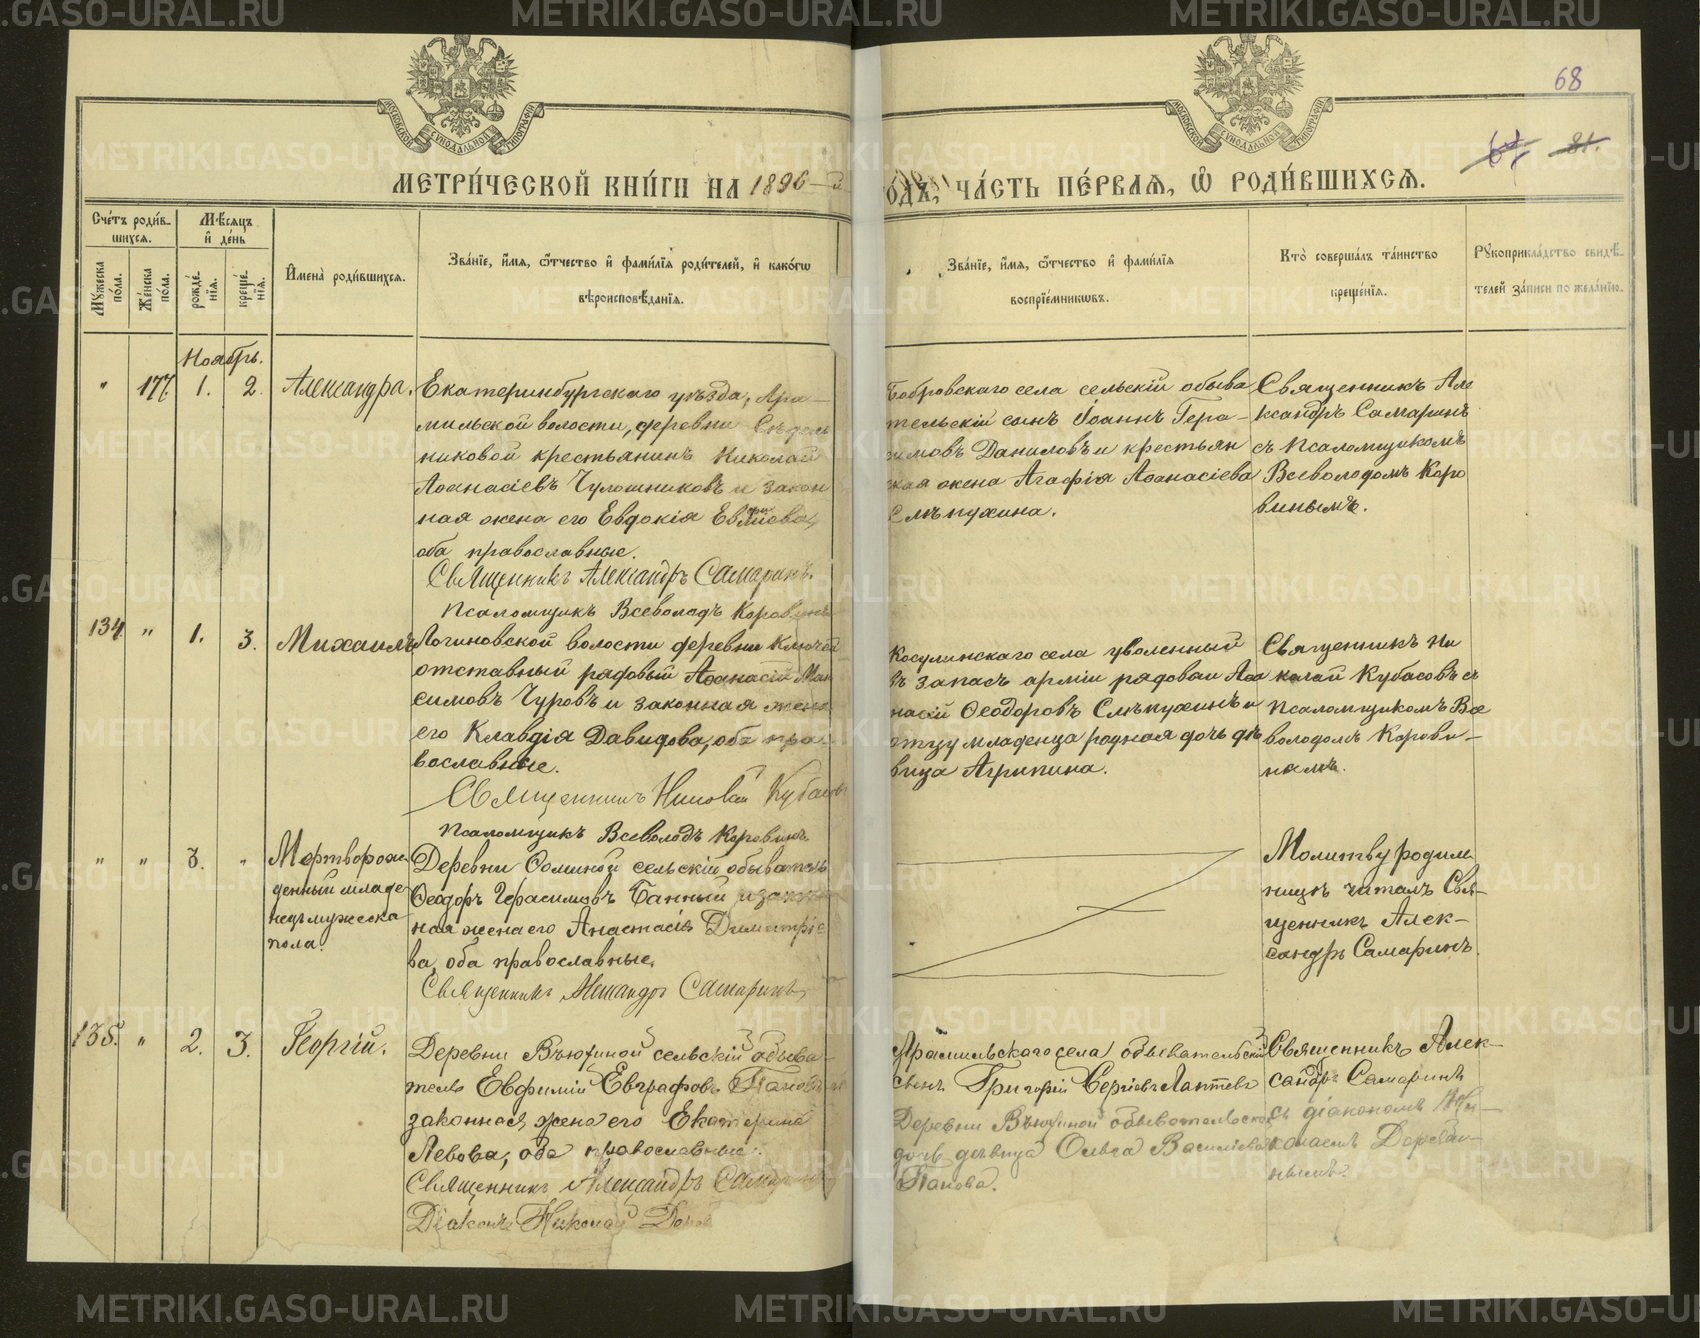 METRIKI.GASO-URAL.RU
68
67 81.
МОСКОВСКОЙ СѴНОДАЛЬНОЙ ТИПОГРАФІИ
МОСКОВСКОЙ СѴНОДАЛЬНОЙ ТИПОГРАФІИ
МЕТРИ́ЧЕСКОЙ КНИ́ГИ НА 1896-й
ГО́ДЪ, ЧА́СТЬ ПЕ́РВАЯ, Ѡ РОДИ́ВШИХСЯ.
Сче́тъ роди́в-
шихся.
Мꙋжеска по́ла.
Же́нска по́ла.
Мѣсяцъ
и де́нь
рожде́-
нія.
креще́-
нія.
Имена̀ роди́вшихся.
Зва́ніе, и́мя, ѻ҆́тчество и фами́лія роди́телей, и како́гѡ
вѣроисповѣданія.
Зва́ніе, и́мя, ѻ҆́тчество и фами́лія
воспріе́мникѡвъ.
Кто̀ соверша́лъ та́инство
креще́нія.
Рꙋкоприкла́дство свидѣ-
телей за́писи по жела́нію.
Ноябрь.
" 177. 1. 2. Александра.
Екатеринбургскаго уѣзда, Ара-
мильской волости, деревни Сѣдель
никовой крестьянинъ Николай
Аѳанасіевъ Чулошниковъ и закон
ная жена его Евдокія
оба православные.
Священникъ Александръ Самаринъ.
Псаломщикъ Всеволодъ Коровинъ
Бобровскаго села сельскій обыва
тельскій сынъ Іоаннъ Гера-
симовъ Даниловъ и крестьян
ская жена Агафія Аѳанасіева
Слѣпухина.
Священникъ Але
ксандръ Самаринъ
съ Псаломщикомъ
Всеволодомъ Коро
винымъ.
134 " 1. 3. Михаилъ
Логиновской волости деревни Ключей
отставный рядовый Аѳанасій Мак
симовъ Чуровъ и законная жена
его Клавдія Давидова, оба пра-
вославные.
Священникъ Николай Кубасовъ
Псаломщикъ Всеволодъ Коровинъ
Косулинскаго села уволенный
въ запасъ арміи рядовый Аѳа
насій Ѳеодоровъ Слѣпухинъ и
отцу младенца родная дочь дѣ
вица Агрипина.
Священникъ Ни
колай Кубасовъ съ
Псаломщикомъ Все
володомъ Корови-
нымъ.
" " 3. " Мертворож
денный младе
нецъ мужеска
пола.
Деревни Ѳоминой сельскій обыватель
Ѳеодоръ Герасимовъ Банный и закон
ная жена его Анастасія Димитріе
ва, оба православные.
Священникъ Александръ Самаринъ
Молитву родиль
ницѣ читалъ Свя-
щенникъ Алек-
сандръ Самаринъ.
135. " 2. 3. Георгій.
Деревни Вьюхиной сельскій обыва-
тель Евѳимій Евграфовъ Пановъ и
законная жена его Екатерина
Львова, оба православные.
Священникъ Александръ Самаринъ
Діаконъ Николай
Арамильскаго села обывательскій
сынъ Григорій Сергіевъ Лаптевъ
Деревни Вьюхиной обывательская
дочь дѣвица Ольга Василіева
Панова.
Священникъ Алек-
сандръ Самаринъ
съ діакономъ Ни-
колаемъ